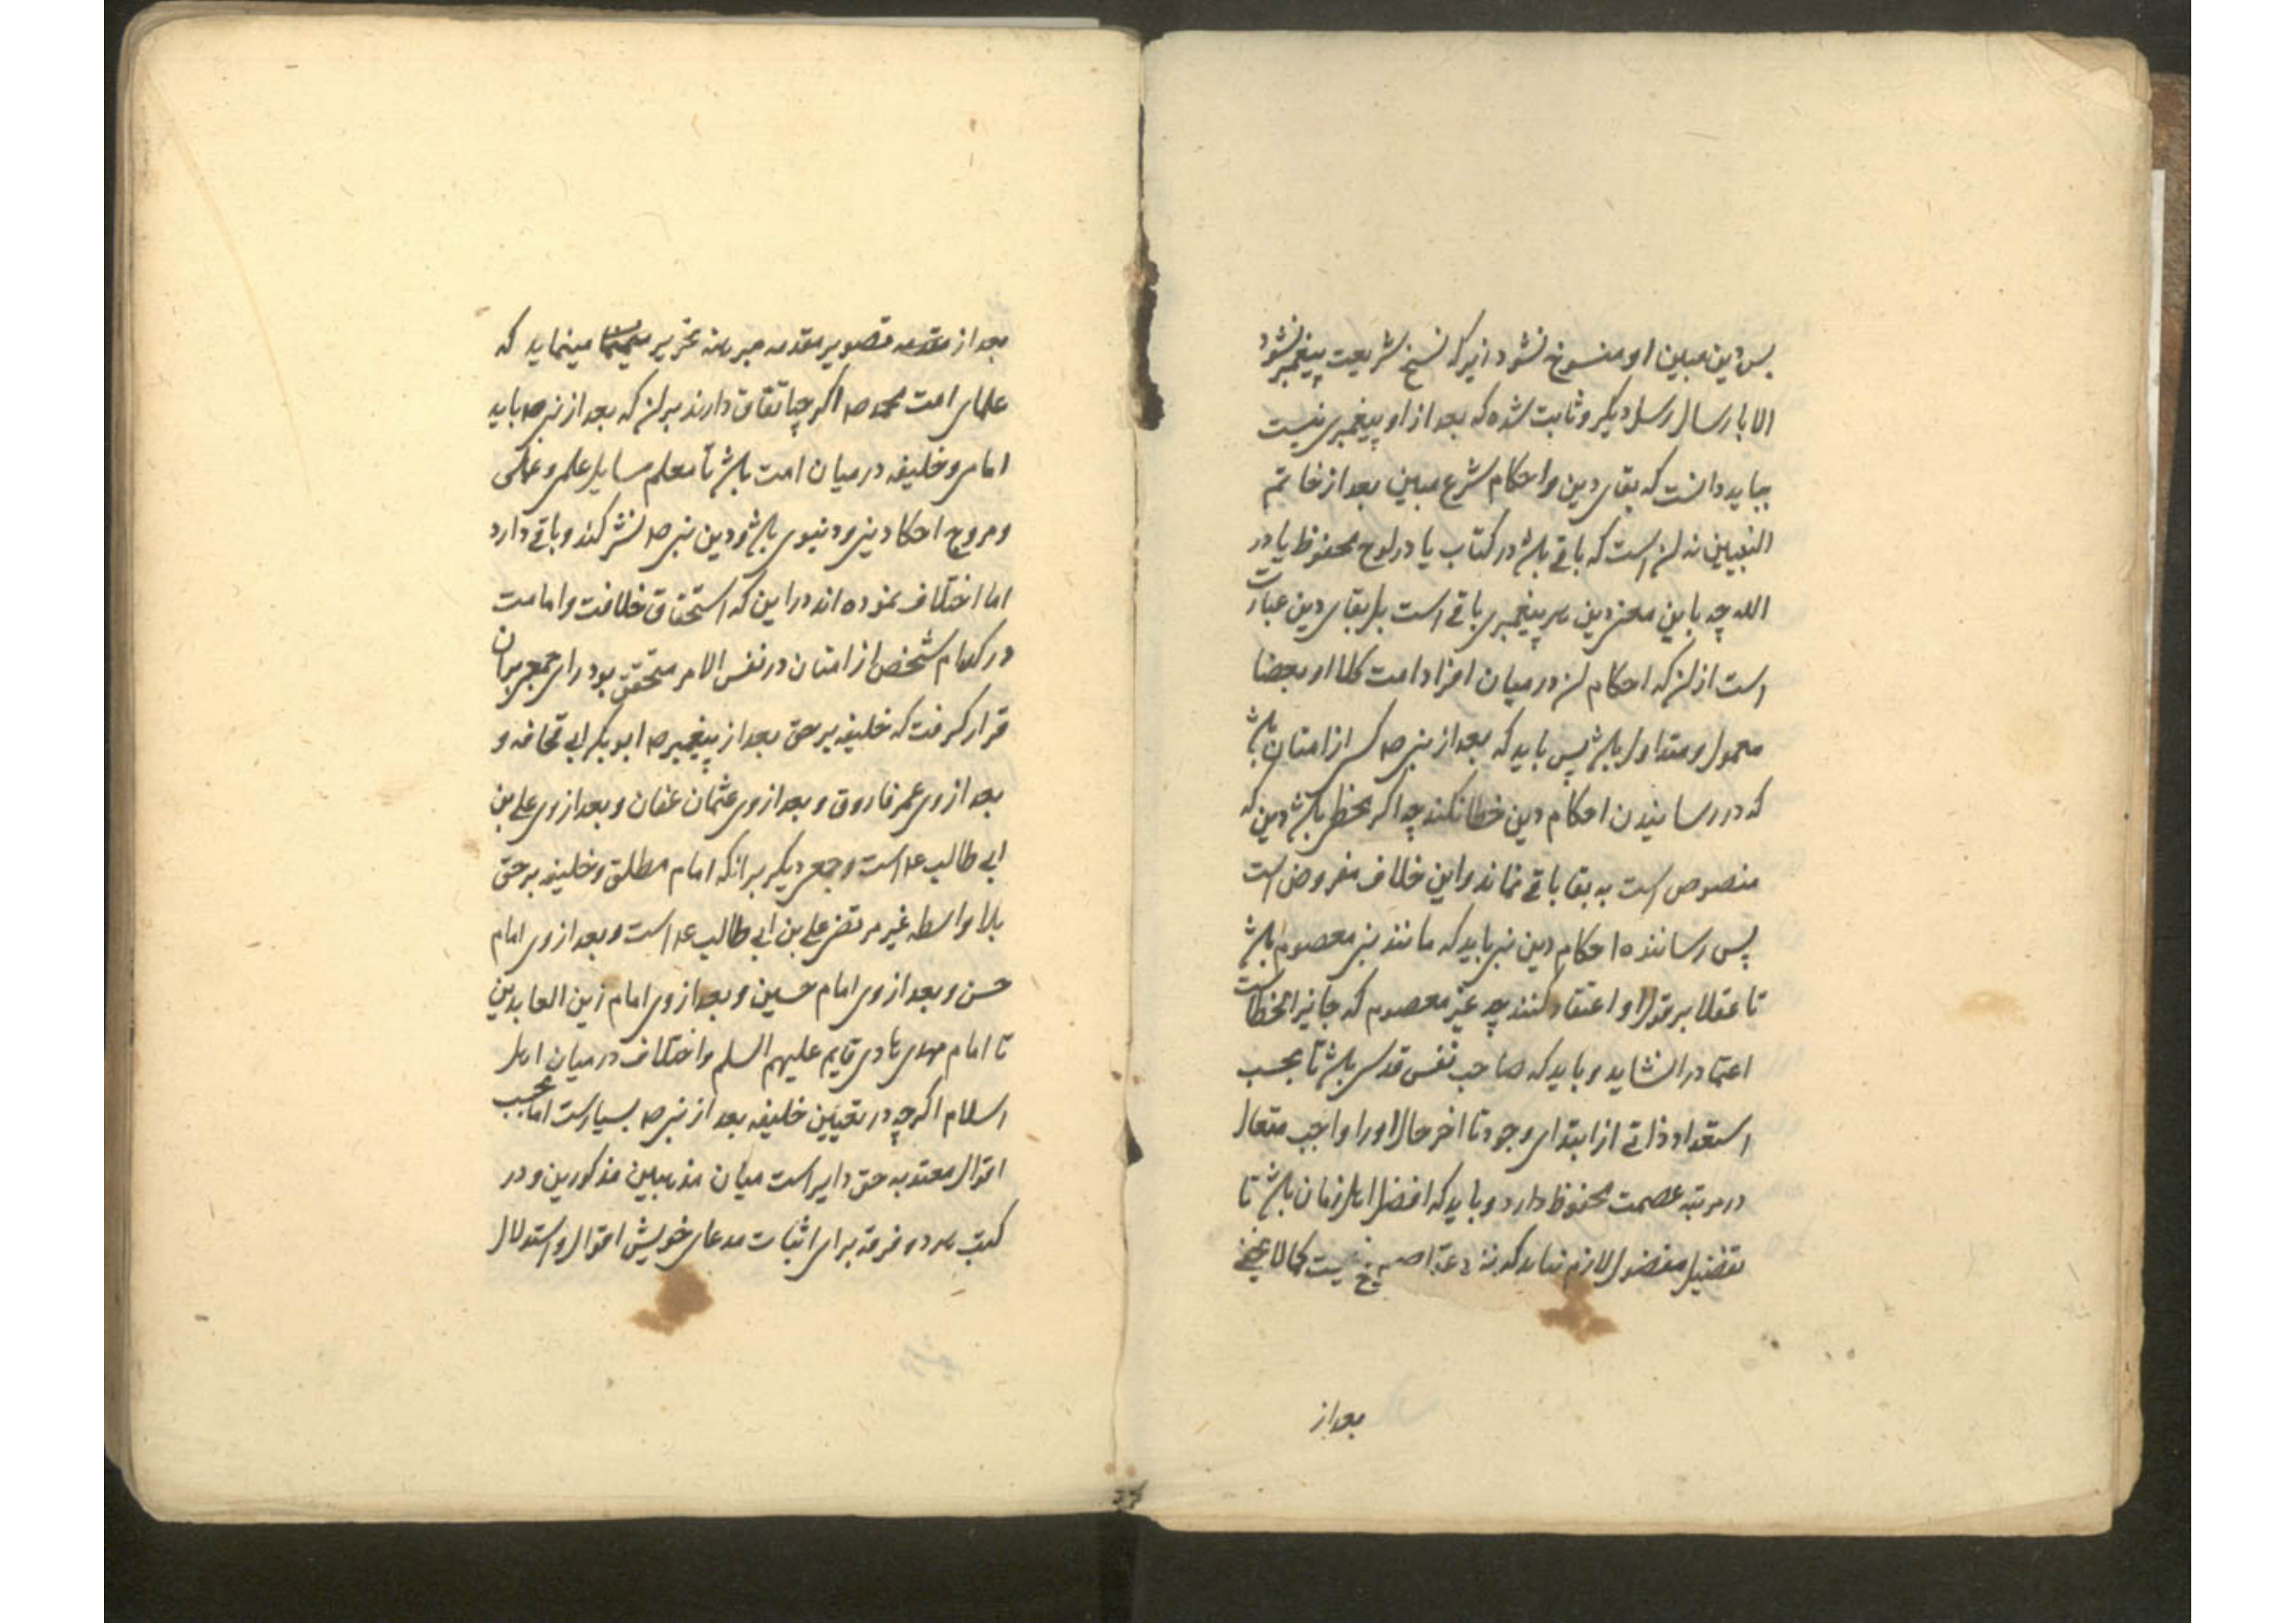 پس دین مبین او منسوخ نشود زیرا که نسخ شریعت پیغمبر نشود
الا بارسال رسل دیگر و ثابت شده که بعد از او پیغمبری نیست
بباید دانست که بقای دین و احکام شرع مبین بعد از خاتم
النبیین نه آن است که باقی باشد در کتاب یا در لوح محفوظ یا در
الله چه باین معنی دین هر پیغمبری باقی است بل بقای دین عبارت
است از آن که احکام آن در میان افراد امت کلا او بعضا
معمول و متداول باشد پس باید که بعد از نبی ص کسی از امتان باشد
که در رسانیدن احکام دین خطا نکند چه اگر مخطی باشد دین که
منصوص است به بقا باقی نماند و این خلاف مفروض است
پس رساننده احکام دین نبی باید که مانند نبی معصوم باشد
تا عقلا بر قول او اعتقاد کنند چه غیر معصوم که جایز الخطاست
اعتماد را نشاید و باید که صاحب نفس قدسی باشد تا بحسب
استعداد ذاتی از ابتدای وجود تا اخر حال او را واجب متعال
در مرتبه عصمت محفوظ دارد و باید که افضل اهل زمان باشد تا
تفضیل مفضول لازم نیاید که نزد عقل صحیح نیست کما لا یخفی
بعد از
بعد از تصویر مقدمه مبرهنه تحریر مینماید که
علمای امت محمد ص اگرچه اتفاق دارند بر آن که بعد از نبی ص باید
امامی و خلیفه در میان امت باشد تا معلم مسایل علمی و عملی
و مروج احکا دینی و دنیوی باشد و دین نبی ص نشر کند و باقی دارد
اما اختلاف نموده اند در این که استحقاق خلافت و امامت
در کدام شخص از امتان در نفس الامر متحقق بود رای جمعی بر آن
قرار گرفت که خلیفه بر حق بعد از پیغمبر ص ابو بکر ابی قحافه و
بعد از وی عمر فاروق و بعد از وی عثمان عفان و بعد از وی علی بن
ابی طالب ع است و جمعی دیگر بر انکه امام مطلق و خلیفه بر حق
بلا واسطه غیر مرتضی علی بن ابی طالب ع است و بعد از وی امام
حسن و بعد از وی امام حسین و بعد از وی امام زین العابدین
تا امام مهدی هادی قایم علیهم السلم و اختلاف در میان اهل
اسلام اگرچه در تعیین خلیفه بعد از نبی ص بسیارست اما بحسب
اقوال معتد به حق دایر است میان مذهبین مذکورین و در
کتب هر دو فرقه برای اثبات مدعای خویش اقوال و استدلال